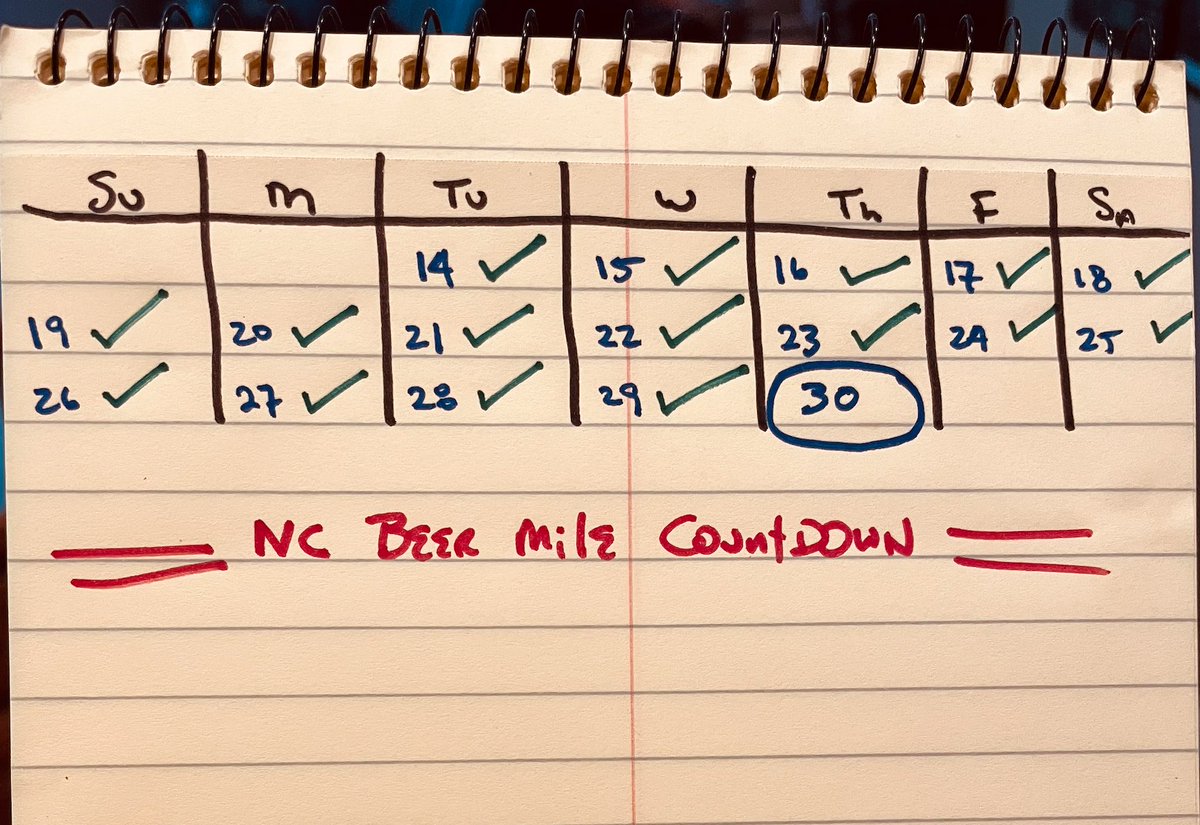 Su M Tu W Th F SA
14 ✓ 15 ✓ 16 ✓ 17 ✓ 18 ✓
19 ✓ 20 ✓ 21 ✓ 22 ✓ 23 ✓ 24 ✓ 25 ✓
26 ✓ 27 ✓ 28 ✓ 29 ✓ 30
NC BEER MilE COuntDOWN